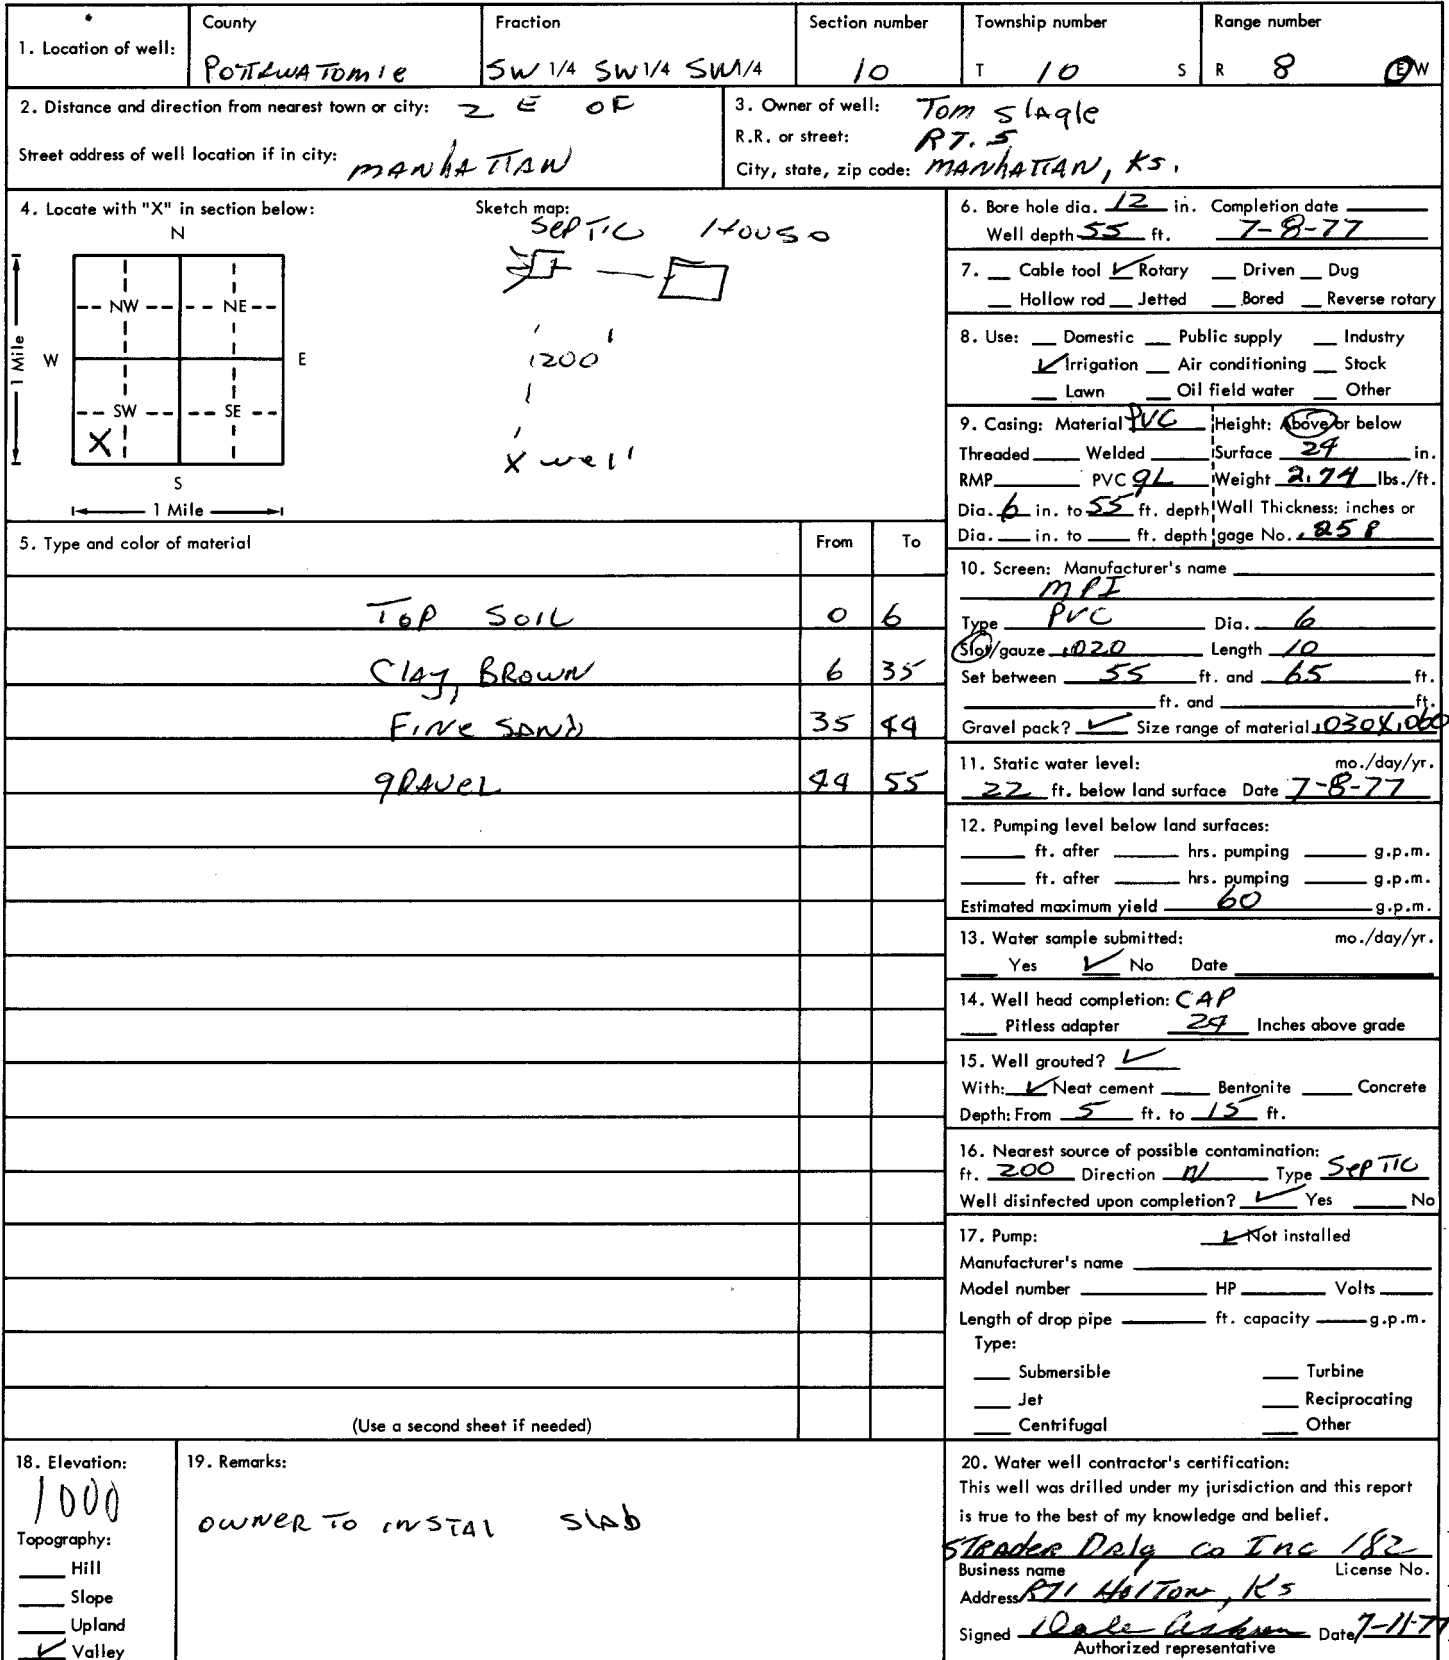 1. Location of well:
County
POTTAWATOMIE
Fraction
SW 1/4 SW 1/4 SW 1/4
Section number
10
Township number
T 10 S
Range number
R 8 E W
2. Distance and direction from nearest town or city: 2 E OF
Street address of well location if in city: MANHATTAN
3. Owner of well: Tom Slagle
R.R. or street: RT. 5
City, state, zip code: MANHATTAN, KS.
4. Locate with "X" in section below:
N
NW NE
W E
SW SE
X
S
1 Mile
1 Mile
Sketch map:
SEPTIC HOUSE
200'
X well
6. Bore hole dia. 12 in. Completion date
Well depth 55 ft. 7-8-77
7. Cable tool ✓ Rotary Driven Dug
Hollow rod Jetted Bored Reverse rotary
8. Use: Domestic Public supply Industry
✓ Irrigation Air conditioning Stock
Lawn Oil field water Other
9. Casing: Material PVC Height: Above or below
Threaded Welded Surface 24 in.
RMP PVC GL Weight 2.74 lbs./ft.
Dia. 6 in. to 55 ft. depth Wall Thickness: inches or
Dia. in. to ft. depth gage No. .258
5. Type and color of material From To
TOP SOIL 0 6
CLAY, BROWN 6 35
FINE SAND 35 44
GRAVEL 44 55
(Use a second sheet if needed)
10. Screen: Manufacturer's name
MPI
Type PVC Dia. 6
Slot/gauze .020 Length 10
Set between 55 ft. and 65 ft.
ft. and ft.
Gravel pack? ✓ Size range of material .030X.060
11. Static water level: mo./day/yr.
22 ft. below land surface Date 7-8-77
12. Pumping level below land surfaces:
ft. after hrs. pumping g.p.m.
ft. after hrs. pumping g.p.m.
Estimated maximum yield 60 g.p.m.
13. Water sample submitted: mo./day/yr.
Yes ✓ No Date
14. Well head completion: CAP
Pitless adapter 24 Inches above grade
15. Well grouted? ✓
With: ✓ Neat cement Bentonite Concrete
Depth: From 5 ft. to 15 ft.
16. Nearest source of possible contamination:
ft. 200 Direction N Type SEPTIC
Well disinfected upon completion? ✓ Yes No
17. Pump: ✓ Not installed
Manufacturer's name
Model number HP Volts
Length of drop pipe ft. capacity g.p.m.
Type:
Submersible Turbine
Jet Reciprocating
Centrifugal Other
18. Elevation:
1000
Topography:
Hill
Slope
Upland
✓ Valley
19. Remarks:
OWNER TO INSTAL SLAB
20. Water well contractor's certification:
This well was drilled under my jurisdiction and this report
is true to the best of my knowledge and belief.
STRADER DRLG CO INC 182
Business name License No.
Address RT1 HOLTON, KS
Signed Dale Date 7-11-77
Authorized representative